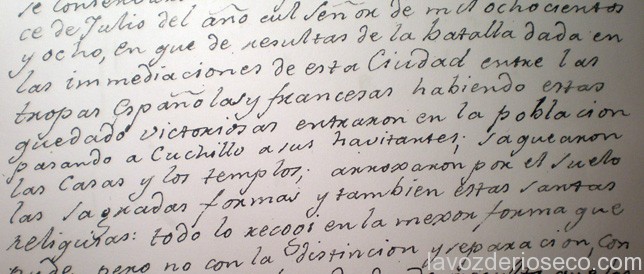 se
ce de Julio del año del señor de mil ochocientos
y ocho, en que de resultas de la batalla dada en
las immediaciones de esta Ciudad entre las
tropas Españolas y francesas habiendo estas
quedado victoriosas entraron en la poblacion
pasando a Cuchillo a sus havitantes; saquearon
las Casas y los templos; arroxaron por el suelo
las sagradas formas y tambien estas santas
religuias: todo lo recogi en la mexor forma que
pude, pero no con la distincion y separacion, con
lavozderioseco.com